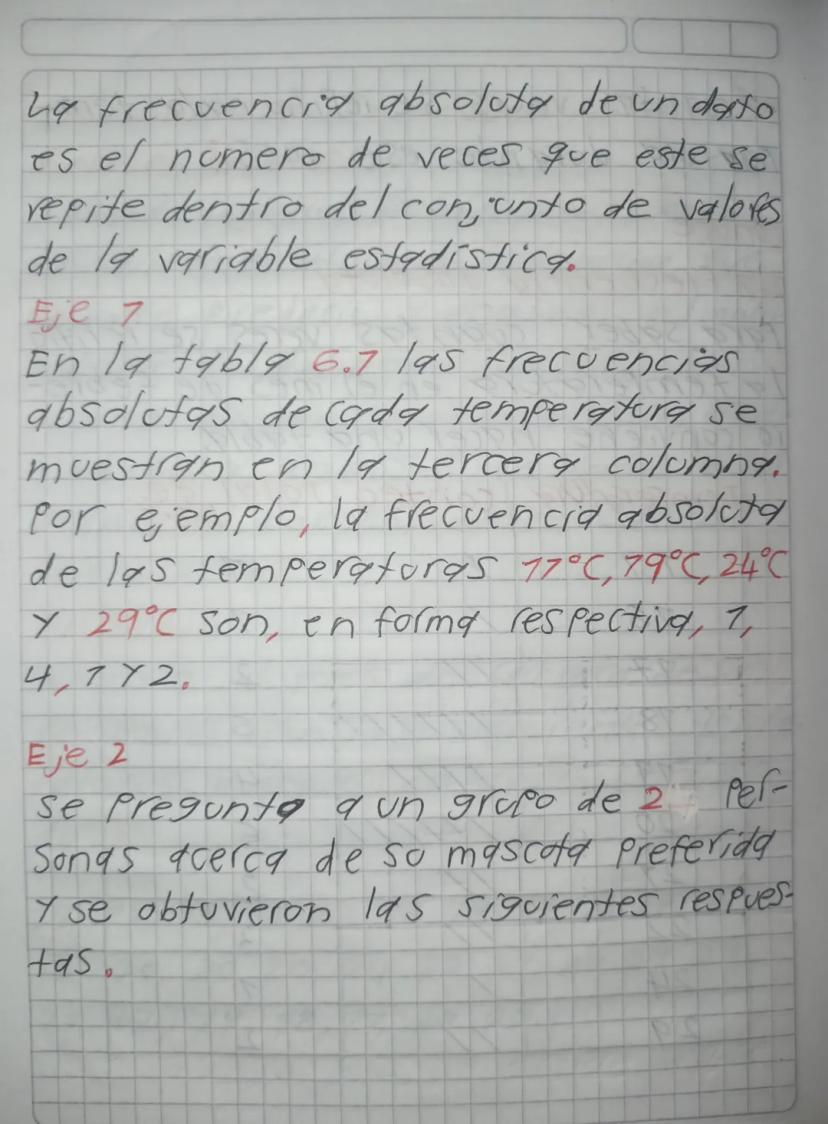 La frecuencia absoluta de un dato
es el numero de veces que este se
repite dentro del conjunto de valores
de la variable estadística.
Eje 1
En la tabla 6.1 las frecuencias
absolutas de cada temperatura se
muestran en la tercera columna.
Por ejemplo, la frecuencia absoluta
de las temperaturas 11°C, 19°C, 24°C
Y 29°C son, en forma respectiva, 1,
4, 1 Y 2.
Eje 2
se pregunto a un grupo de 2 Per-
sonas acerca de su mascota preferida
Y se obtuvieron las siguientes respues-
tas.